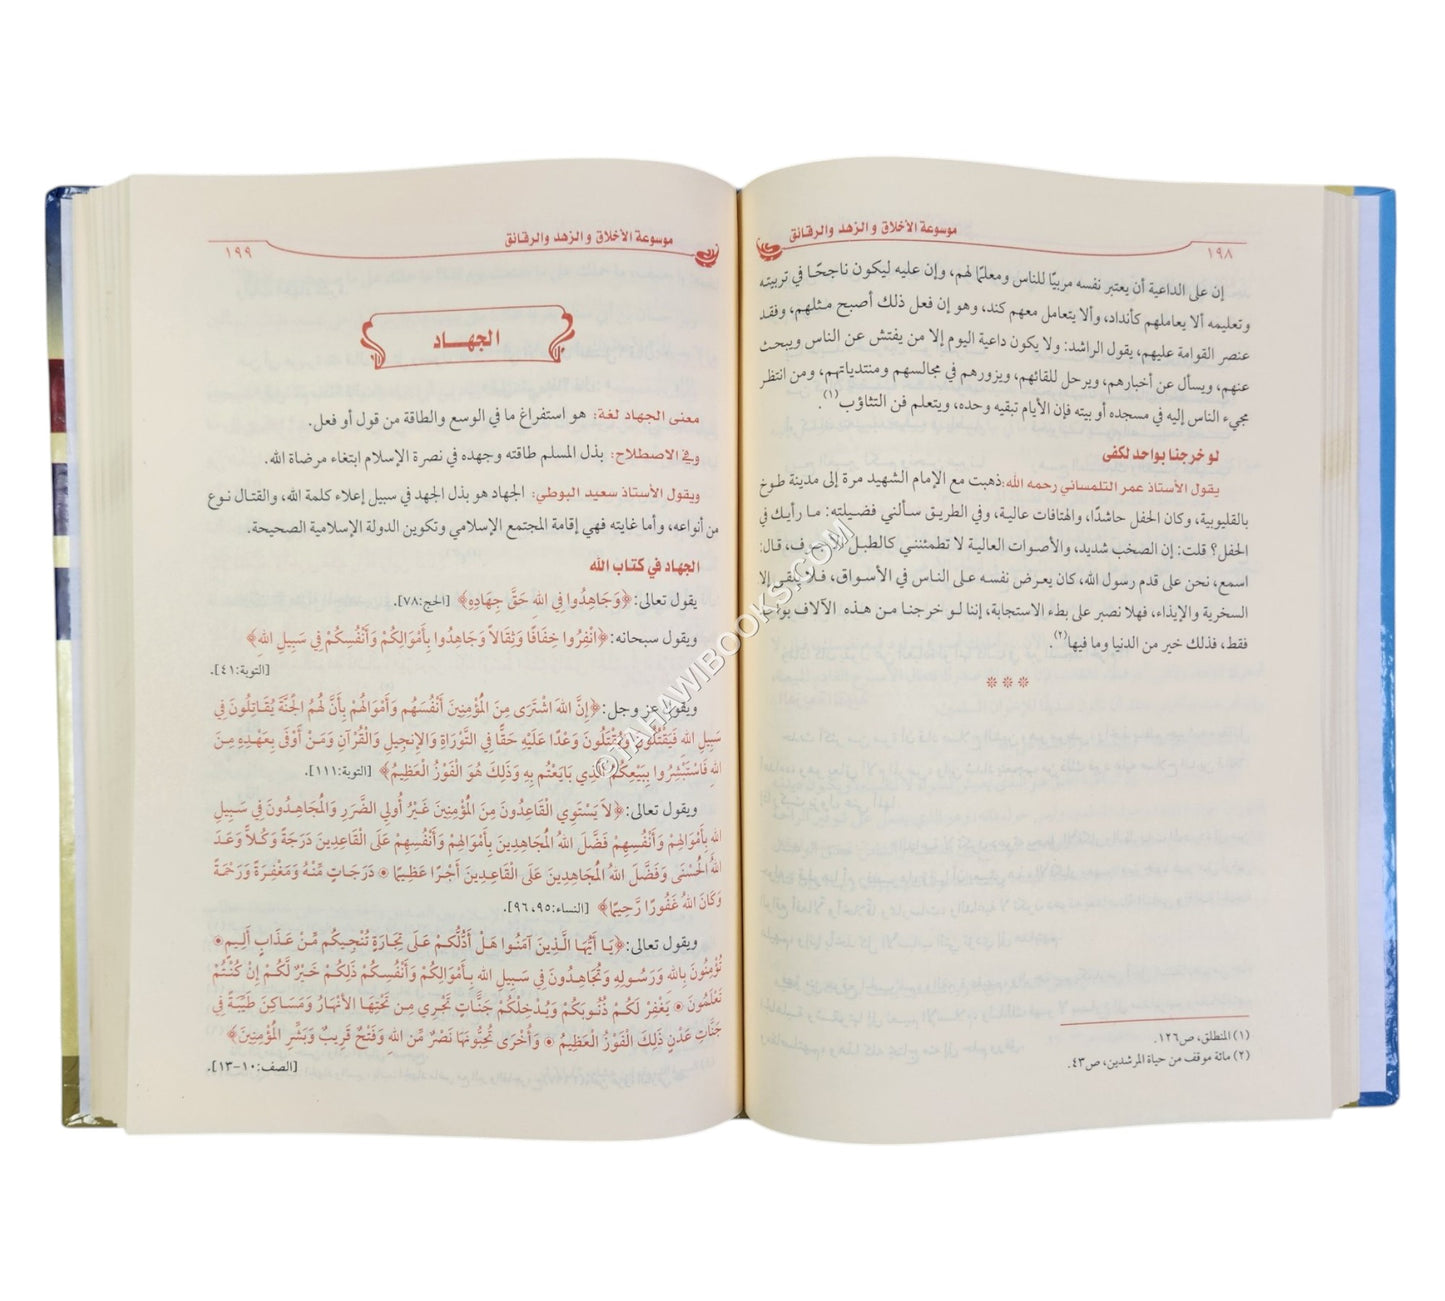 موسوعة الأخلاق والزهد والرقائق
١٩٨
إن على الداعية أن يعتبر نفسه مربيًا للناس ومعلمًا لهم، وإن عليه ليكون ناجحًا في تربيته
وتعليمه ألا يعاملهم كأنداد، وألا يتعامل معهم كند، وهو إن فعل ذلك أصبح مثلهم، وفقد
عنصر القوامة عليهم، يقول الراشد: ولا يكون داعية اليوم إلا من يفتش عن الناس ويبحث
عنهم، ويسأل عن أخبارهم، ويرحل للقائهم، ويزورهم في مجالسهم ومنتدياتهم، ومن انتظر
مجيء الناس إليه في مسجده أو بيته فإن الأيام تبقيه وحده، ويتعلم فن التثاؤب(١).
لو خرجنا بواحد لكفى
يقول الأستاذ عمر التلمساني رحمه الله: ذهبت مع الإمام الشهيد مرة إلى مدينة طوخ
بالقليوبية، وكان الحفل حاشدًا، والهتافات عالية، وفي الطريق سألني فضيلته: ما رأيك في
الحفل؟ قلت: إن الصخب شديد، والأصوات العالية لا تطمئنني كالطبل الأجوف، قال:
اسمع، نحن على قدم رسول الله، كان يعرض نفسه على الناس في الأسواق، فلا يلقى إلا
السخرية والإيذاء، فهلا نصبر على بطء الاستجابة، إننا لو خرجنا من هذه الآلاف بواحد
فقط، فذلك خير من الدنيا وما فيها(٢).
***
(١) المنطلق، ص١٢٦.
(٢) مائة موقف من حياة المرشدين، ص٤٣.
موسوعة الأخلاق والزهد والرقائق
١٩٩
الجهاد
معنى الجهاد لغة: هو استفراغ ما في الوسع والطاقة من قول أو فعل.
وفي الاصطلاح: بذل المسلم طاقته وجهده في نصرة الإسلام ابتغاء مرضاة الله.
ويقول الأستاذ سعيد البوطي: الجهاد هو بذل الجهد في سبيل إعلاء كلمة الله، والقتال نوع
من أنواعه، وأما غايته فهي إقامة المجتمع الإسلامي وتكوين الدولة الإسلامية الصحيحة.
الجهاد في كتاب الله
يقول تعالى: ﴿وَجَاهِدُوا فِي اللهِ حَقَّ جِهَادِهِ﴾ [الحج:٧٨].
ويقول سبحانه: ﴿انْفِرُوا خِفَافًا وَثِقَالاً وَجَاهِدُوا بِأَمْوَالِكُمْ وَأَنْفُسِكُمْ فِي سَبِيلِ اللهِ﴾
[التوبة:٤١].
ويقول عز وجل: ﴿إِنَّ اللهَ اشْتَرَى مِنَ الْمُؤْمِنِينَ أَنْفُسَهُم وَأَمْوَالَهُمْ بِأَنَّ لَهُمُ الْجَنَّةَ يُقَاتِلُونَ فِي
سَبِيلِ اللهِ فَيَقْتُلُونَ وَيُقْتَلُونَ وَعْدًا عَلَيْهِ حَقًّا فِي التَّوْرَاةِ وَالإنجِيلِ وَالْقُرْآنِ وَمَنْ أَوْفَى بِعَهْدِهِ مِنَ
اللهِ فَاسْتَبْشِرُوا بِبَيْعِكُمُ الَّذِي بَايَعْتُم بِهِ وَذَلِكَ هُوَ الْفَوْزُ الْعَظِيمُ﴾ [التوبة:١١١].
ويقول تعالى: ﴿لاَ يَسْتَوِي الْقَاعِدُونَ مِنَ الْمُؤْمِنِينَ غَيْرُ أُولِي الضَّرَرِ وَالْمُجَاهِدُونَ فِي سَبِيلِ
اللهِ بِأَمْوَالِهِمْ وَأَنْفُسِهِمْ فَضَّلَ اللهُ الْمُجَاهِدِينَ بِأَمْوَالِهِمْ وَأَنْفُسِهِمْ عَلَى الْقَاعِدِينَ دَرَجَةً وَكُلاًّ وَعَدَ
اللهُ الْحُسْنَى وَفَضَّلَ اللهُ الْمُجَاهِدِينَ عَلَى الْقَاعِدِينَ أَجْرًا عَظِيمًا * دَرَجَاتٍ مِّنْهُ وَمَغْفِرَةً وَرَحْمَةً
وَكَانَ اللهُ غَفُورًا رَّحِيمًا﴾ [النساء:٩٥، ٩٦].
ويقول تعالى: ﴿يَا أَيُّهَا الَّذِينَ آمَنُوا هَلْ أَدُلُّكُمْ عَلَى تِجَارَةٍ تُنْجِيكُم مِّنْ عَذَابٍ أَلِيمٍ *
تُؤْمِنُونَ بِاللهِ وَرَسُولِهِ وَتُجَاهِدُونَ فِي سَبِيلِ اللهِ بِأَمْوَالِكُمْ وَأَنْفُسِكُمْ ذَلِكُمْ خَيْرٌ لَّكُمْ إِنْ كُنْتُمْ
تَعْلَمُونَ * يَغْفِرْ لَكُمْ ذُنُوبَكُمْ وَيُدْخِلْكُمْ جَنَّاتٍ تَجْرِي مِن تَحْتِهَا الأَنْهَارُ وَمَسَاكِنَ طَيِّبَةً فِي
جَنَّاتِ عَدْنٍ ذَلِكَ الْفَوْزُ الْعَظِيمُ * وَأُخْرَى تُحِبُّونَهَا نَصْرٌ مِّنَ اللهِ وَفَتْحٌ قَرِيبٌ وَبَشِّرِ الْمُؤْمِنِينَ﴾
[الصف:١٠-١٣].
©TAHAWIBOOKS.COM